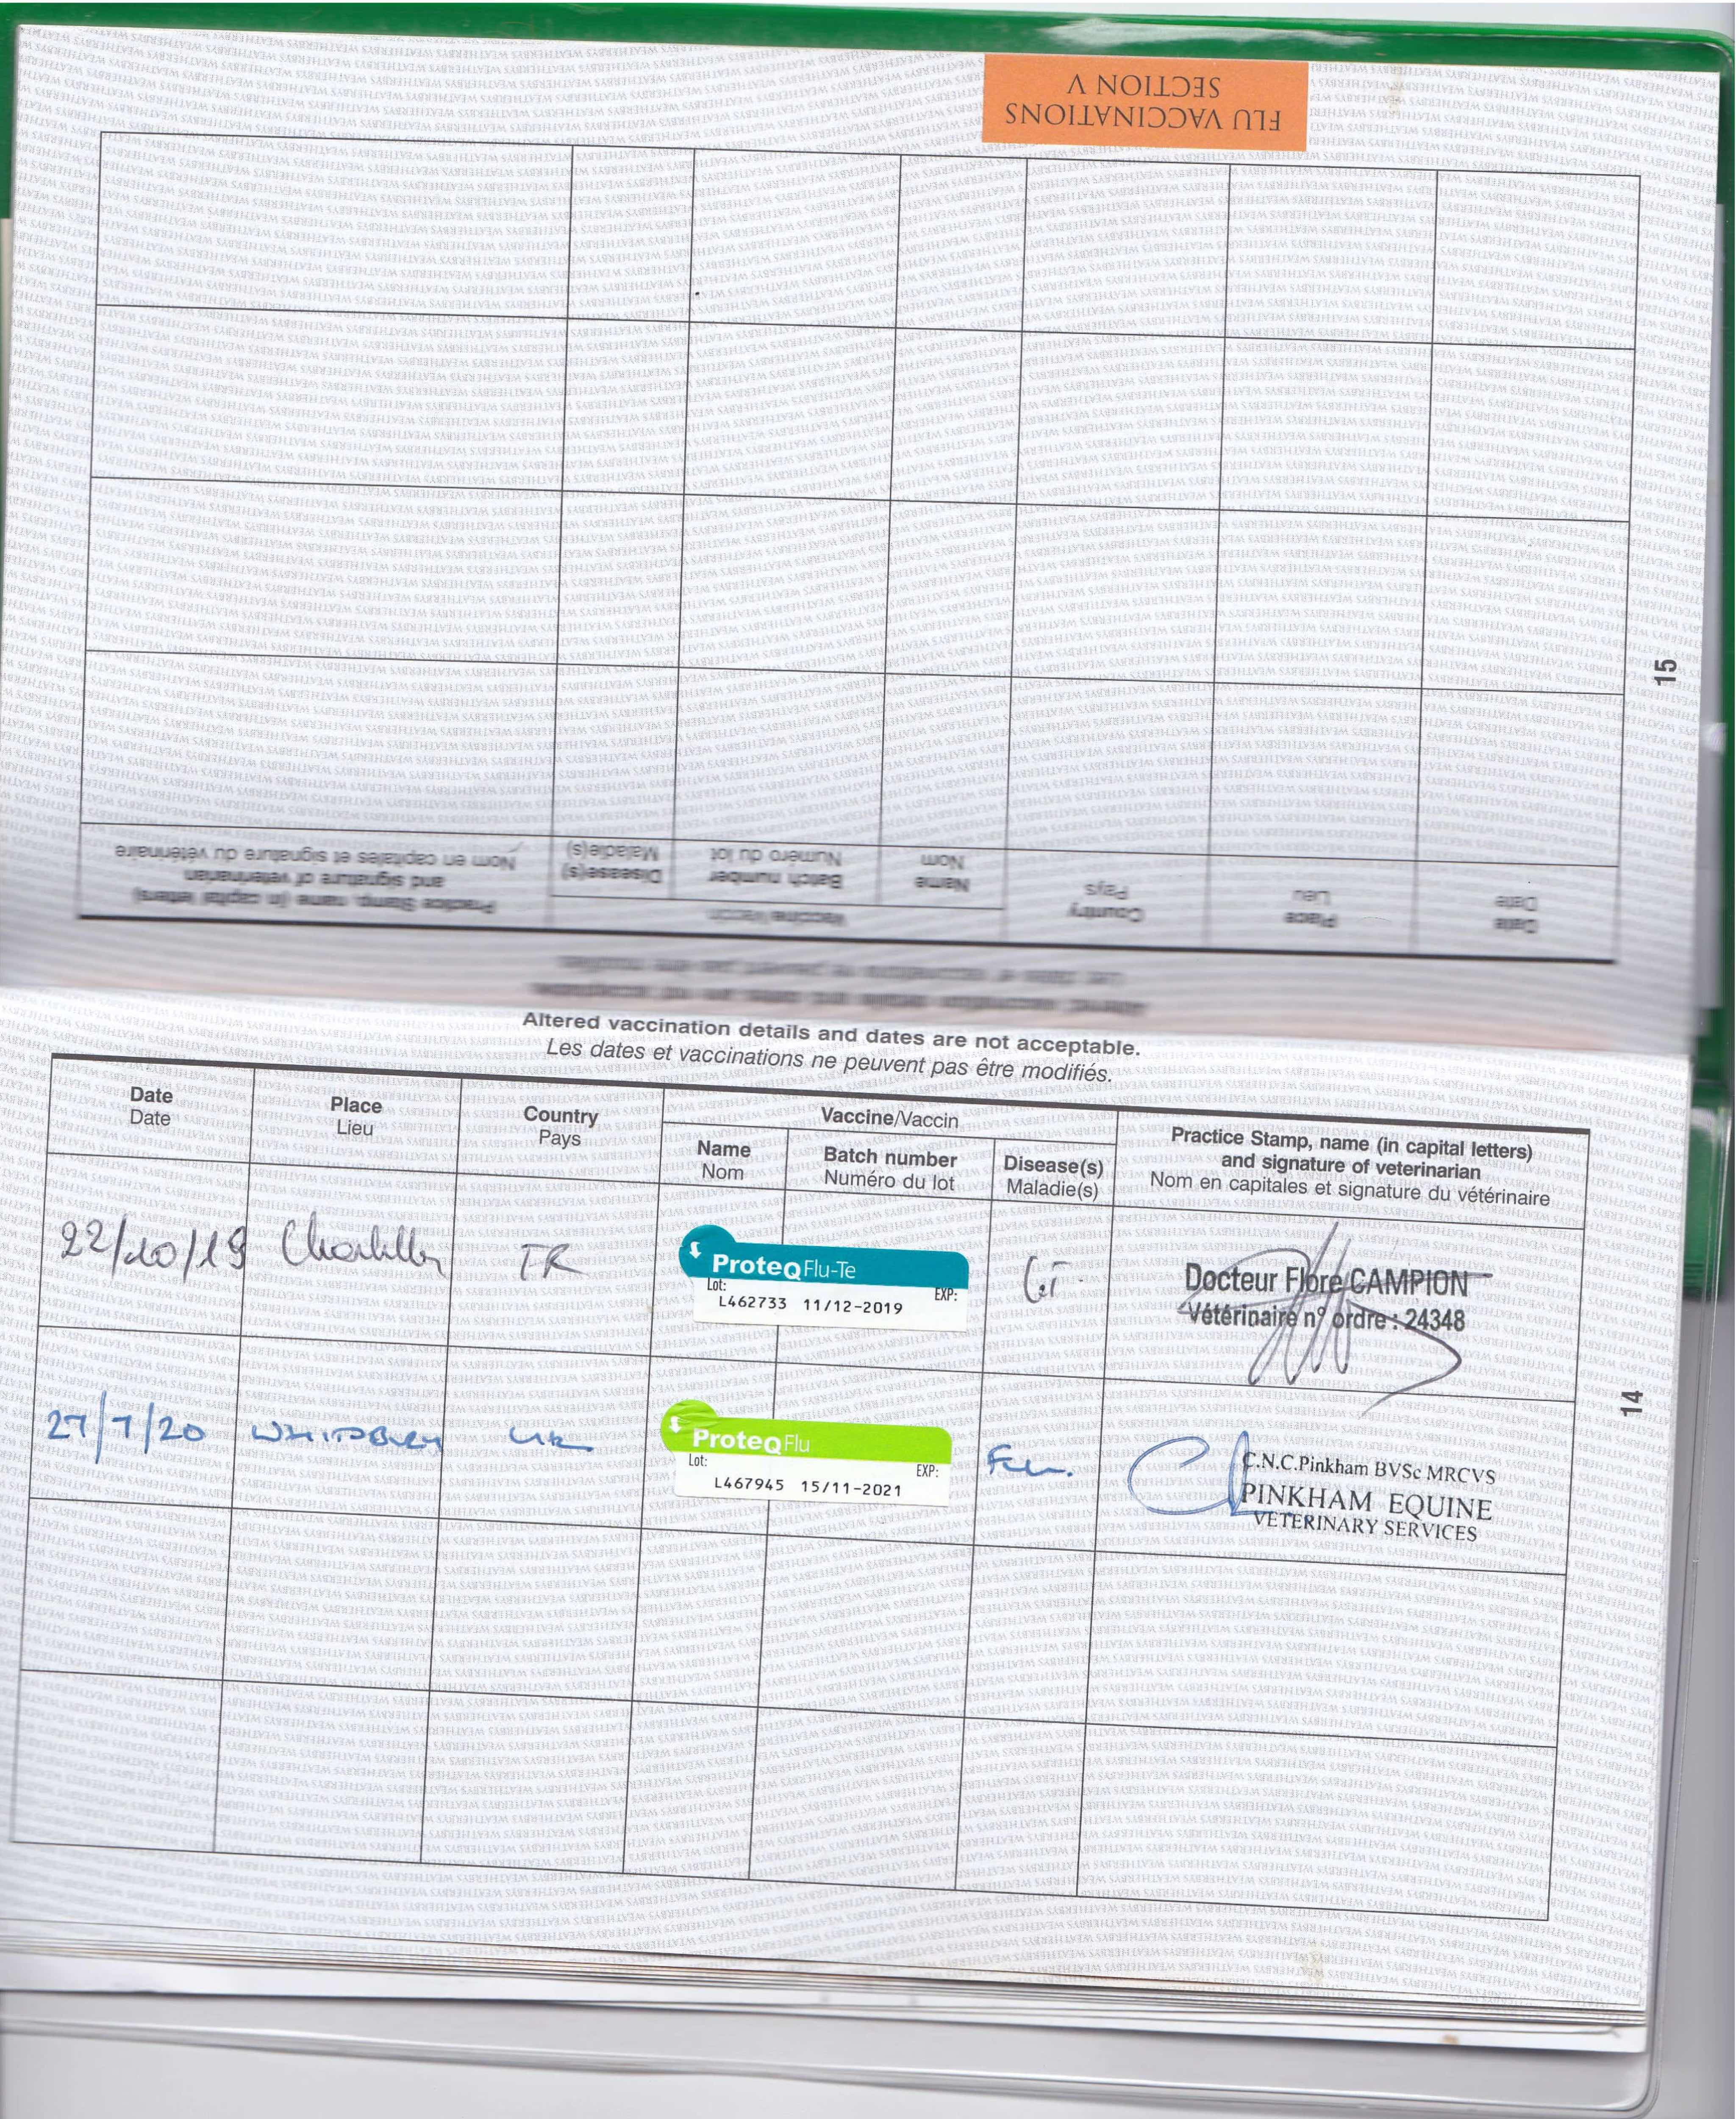 FLU VACCINATIONS
SECTION V
Practice Stamp, name (in capital letters)
and signature of veterinarian
Nom en capitales et signature du vétérinaire
Vaccine/Vaccin
Disease(s)
Maladie(s)
Batch number
Numéro du lot
Name
Nom
Country
Pays
Place
Lieu
Date
Date
15
Altered vaccination details and dates are not acceptable.
Les dates et vaccinations ne peuvent pas être modifiés.
Altered vaccination details and dates are not acceptable.
Les dates et vaccinations ne peuvent pas être modifiés.
Date
Date
Place
Lieu
Country
Pays
Vaccine/Vaccin
Name
Nom
Batch number
Numéro du lot
Disease(s)
Maladie(s)
Practice Stamp, name (in capital letters)
and signature of veterinarian
Nom en capitales et signature du vétérinaire
22/10/19
ProteqFlu-Te
Lot: EXP:
L462733 11/12-2019
Docteur Flore CAMPION
Vétérinaire n° ordre : 24348
27/7/20 UK
ProteqFlu
Lot: EXP:
L467945 15/11-2021
Flu.
C.N.C.Pinkham BVSc MRCVS
PINKHAM EQUINE
VETERINARY SERVICES
14
WEATHERBYS